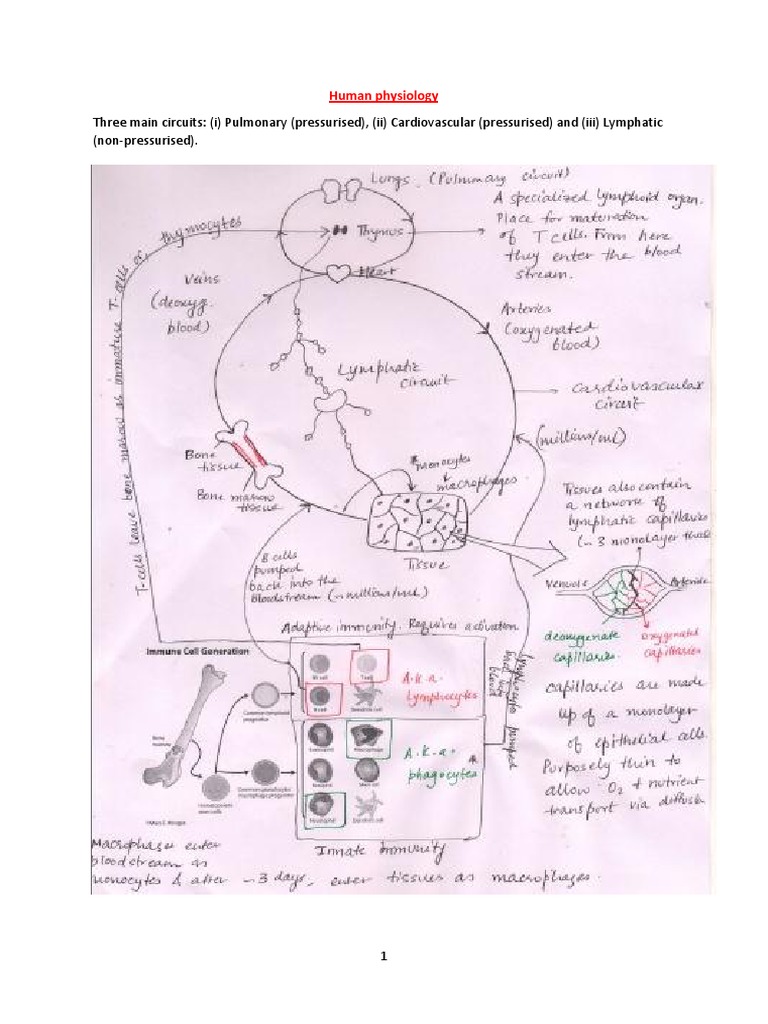 Human physiology
Three main circuits: (i) Pulmonary (pressurised), (ii) Cardiovascular (pressurised) and (iii) Lymphatic
(non-pressurised).
Lungs. (Pulmonary circuit)
A specialized lymphoid organ.
Place for maturation
of T cells. From here
they enter the blood
stream.
Thymus
Heart
T-cells leave bone marrow as immature T-cells or thymocytes
Veins
(deoxyg.
blood)
Arteries
(oxygenated
blood)
Lymphatic
circuit
Cardiovascular
circuit
(millions/ml)
Bone
tissue
Bone marrow
tissue
monocytes
macrophages
Tissue
Tissues also contain
a network of
lymphatic capillaries
(~3 monolayer
Venule
Arteriole
deoxygenate
capillaries
oxygenated
capillaries
B cells
pumped
back into the
bloodstream (~millions/ml)
Adaptive immunity. Requires activation
Immune Cell Generation
Bone
marrow
Common lymphoid
progenitor
T cell
B cell
Dendritic cell
A.k.a.
Lymphocytes
Macrophage
Mast cell
Neutrophil
Dendritic cell
A.k.a.
phagocytes
Innate immunity
capillaries are made
up of a monolayer
of epithelial cells.
Purposely thin to
allow O2 + nutrient
transport via
Macrophages enter
bloodstream as
monocytes & after ~3 days, enter tissues as macrophages.
1